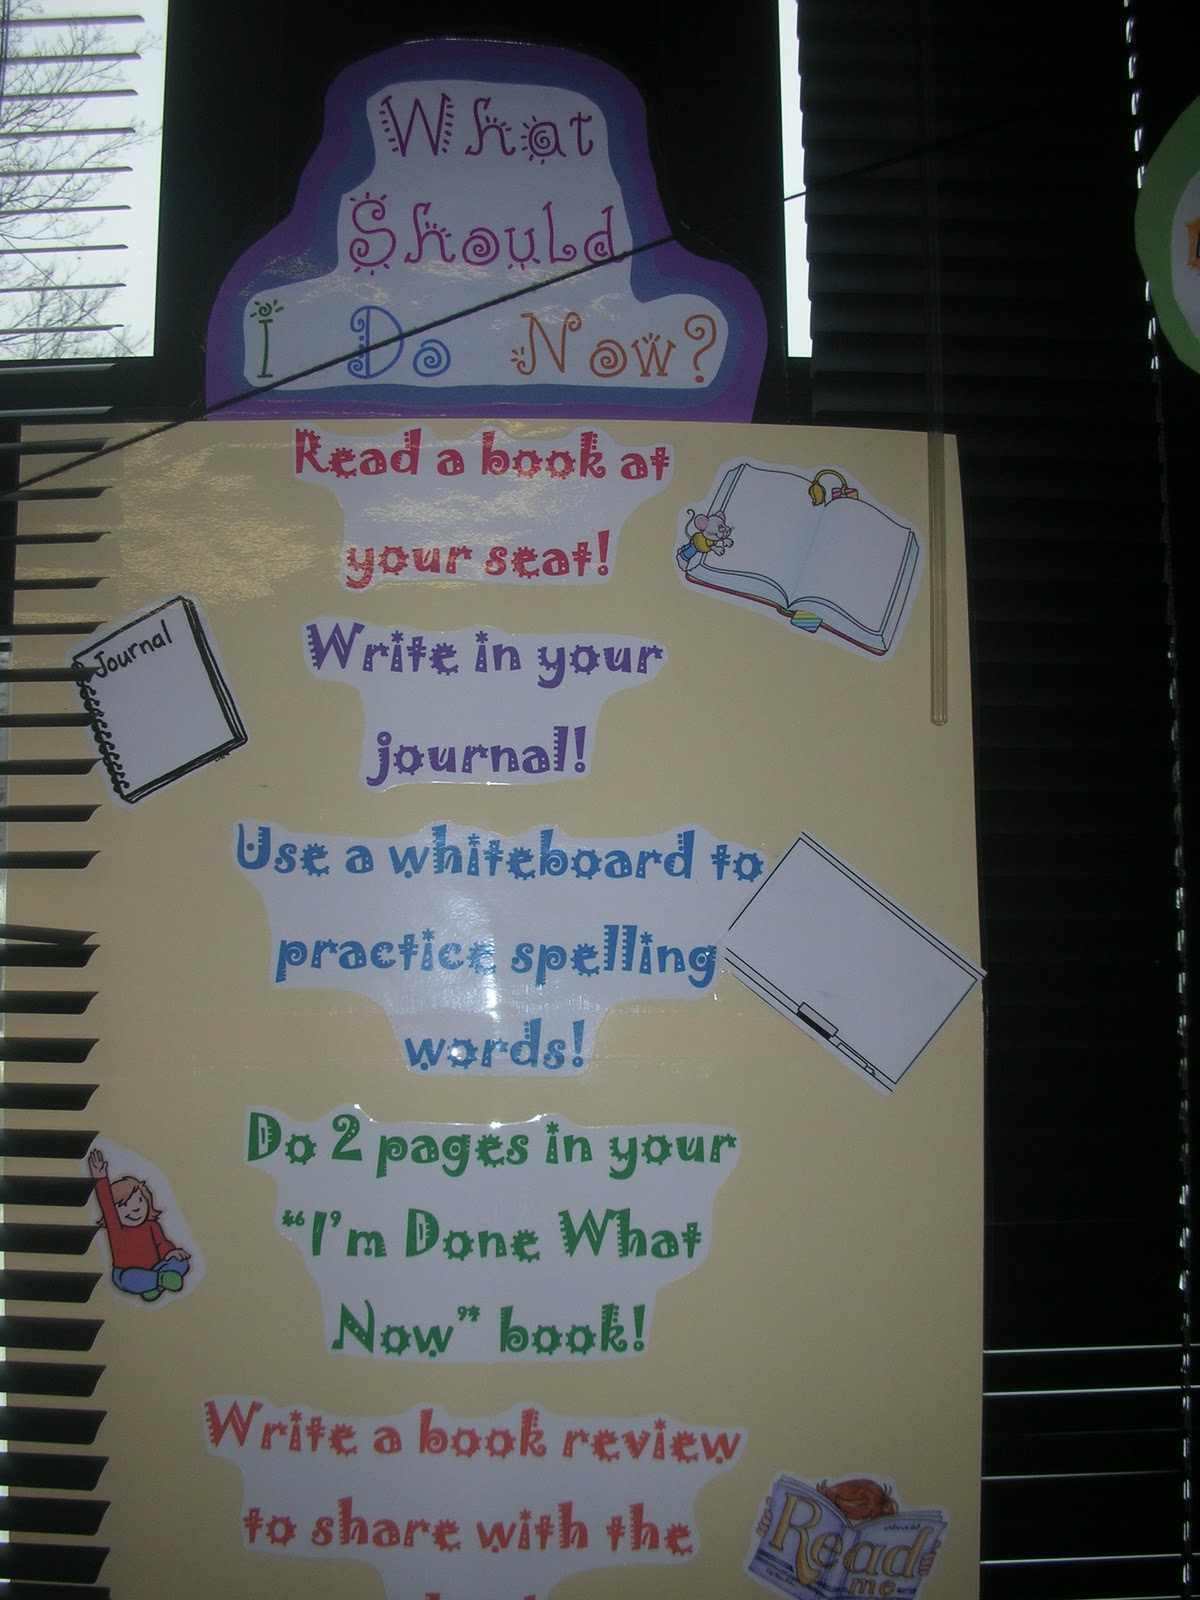 What
Should
I Do Now?
Read a book at
your seat!
Journal
Write in your
journal!
Use a whiteboard to
practice spelling
words!
Do 2 pages in your
"I'm Done What
Now" book!
Write a book review
to share with the
Read
me